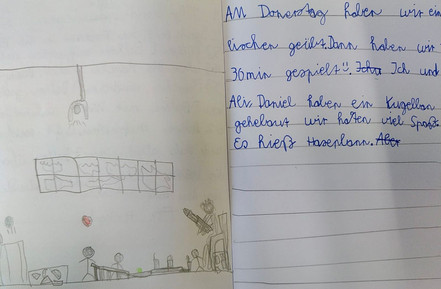 Am Donerstag haben wir ein
wochen geübt. Dann haben wir
30min gespielt Ich und
Ali. Daniel haben ein Kugelban
gehebaut wir haten viel Spaß.
Es hieß Hasenbann. Aber